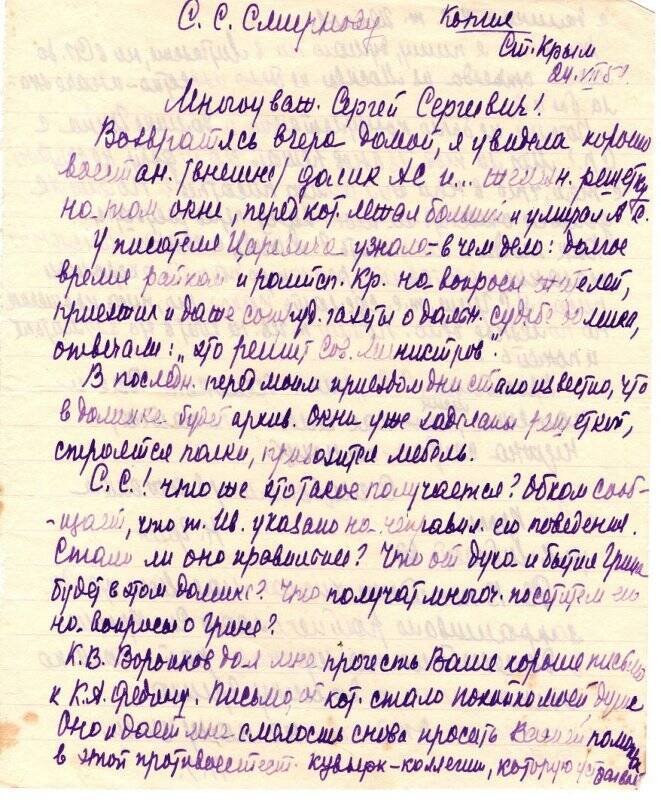 С. С. Смирнову Копия
Ст. Крым
24.VII 5
Многоуваж. Сергей Сергеевич!
Возвратясь вчера домой, я увидела хорошо
восстан. (внешне) домик АС и... н. решетку
на том окне, перед кот. лежал больной и умирал А. С.
У писателя Царевича узнала в чем дело: долгое
время райком и ромисп. Кр. на вопросы жителей,
приезжих и даже сотруд. газеты о дальн. судьбе домика,
отвечали: „это решит Сов. Министров".
В последн. перед моим приездом дни стало известно, что
в домике будет архив. Окна уже заделаны решеткой,
строятся полки, привозится мебель.
С. С.! Что же это такое получается? Обком сооб-
-щает, что т. Ив. указано на неправил. его поведения.
Стало ли оно правильнее? Что от духа и бытия Грина
будет в этом домике? Что получат многоч. посетители его
на вопросы о Грине?
К. В. Воронков дал мне прочесть Ваше хорошее письмо
к К. А. Федину. Письмо, от кот. стало покойно моей душе
Оно и дает мне смелость снова просить Вашей помощи
в этой противоестест. кувырк-коллегии, которую